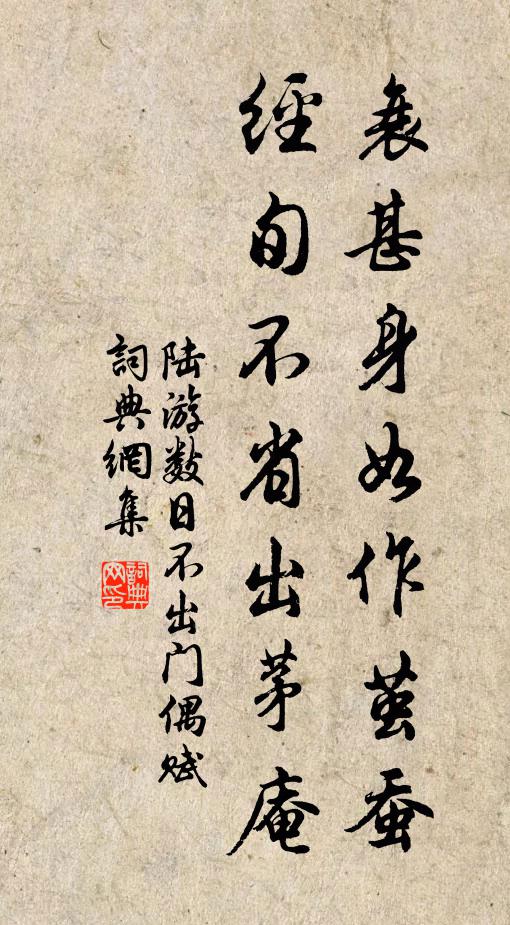 衰甚身如作茧蚕
經旬不省出茅庵
陆游数日不出门偶赋
詞典網集
詞典网印